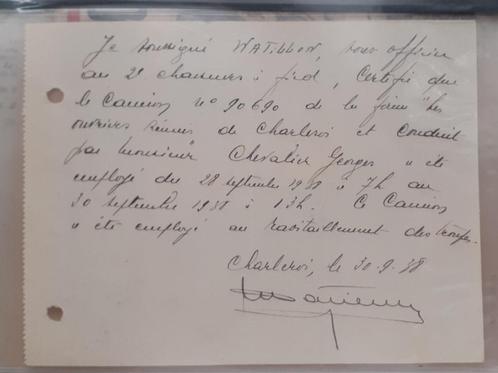 Je soussigné WATILLON, sous officier
au 2e chasseurs à pied, Certifie que
le Camion n° 90690 de la firme "Les
ouvriers réunis de Charleroi et conduit
par Monsieur Chevalier Georges a été
employé du 28 septembre 1938 à 7h au
30 septembre 1938 à 13h. Ce Camion
a été employé au ravitaillement des troupes.
Charleroi, le 30-9-38